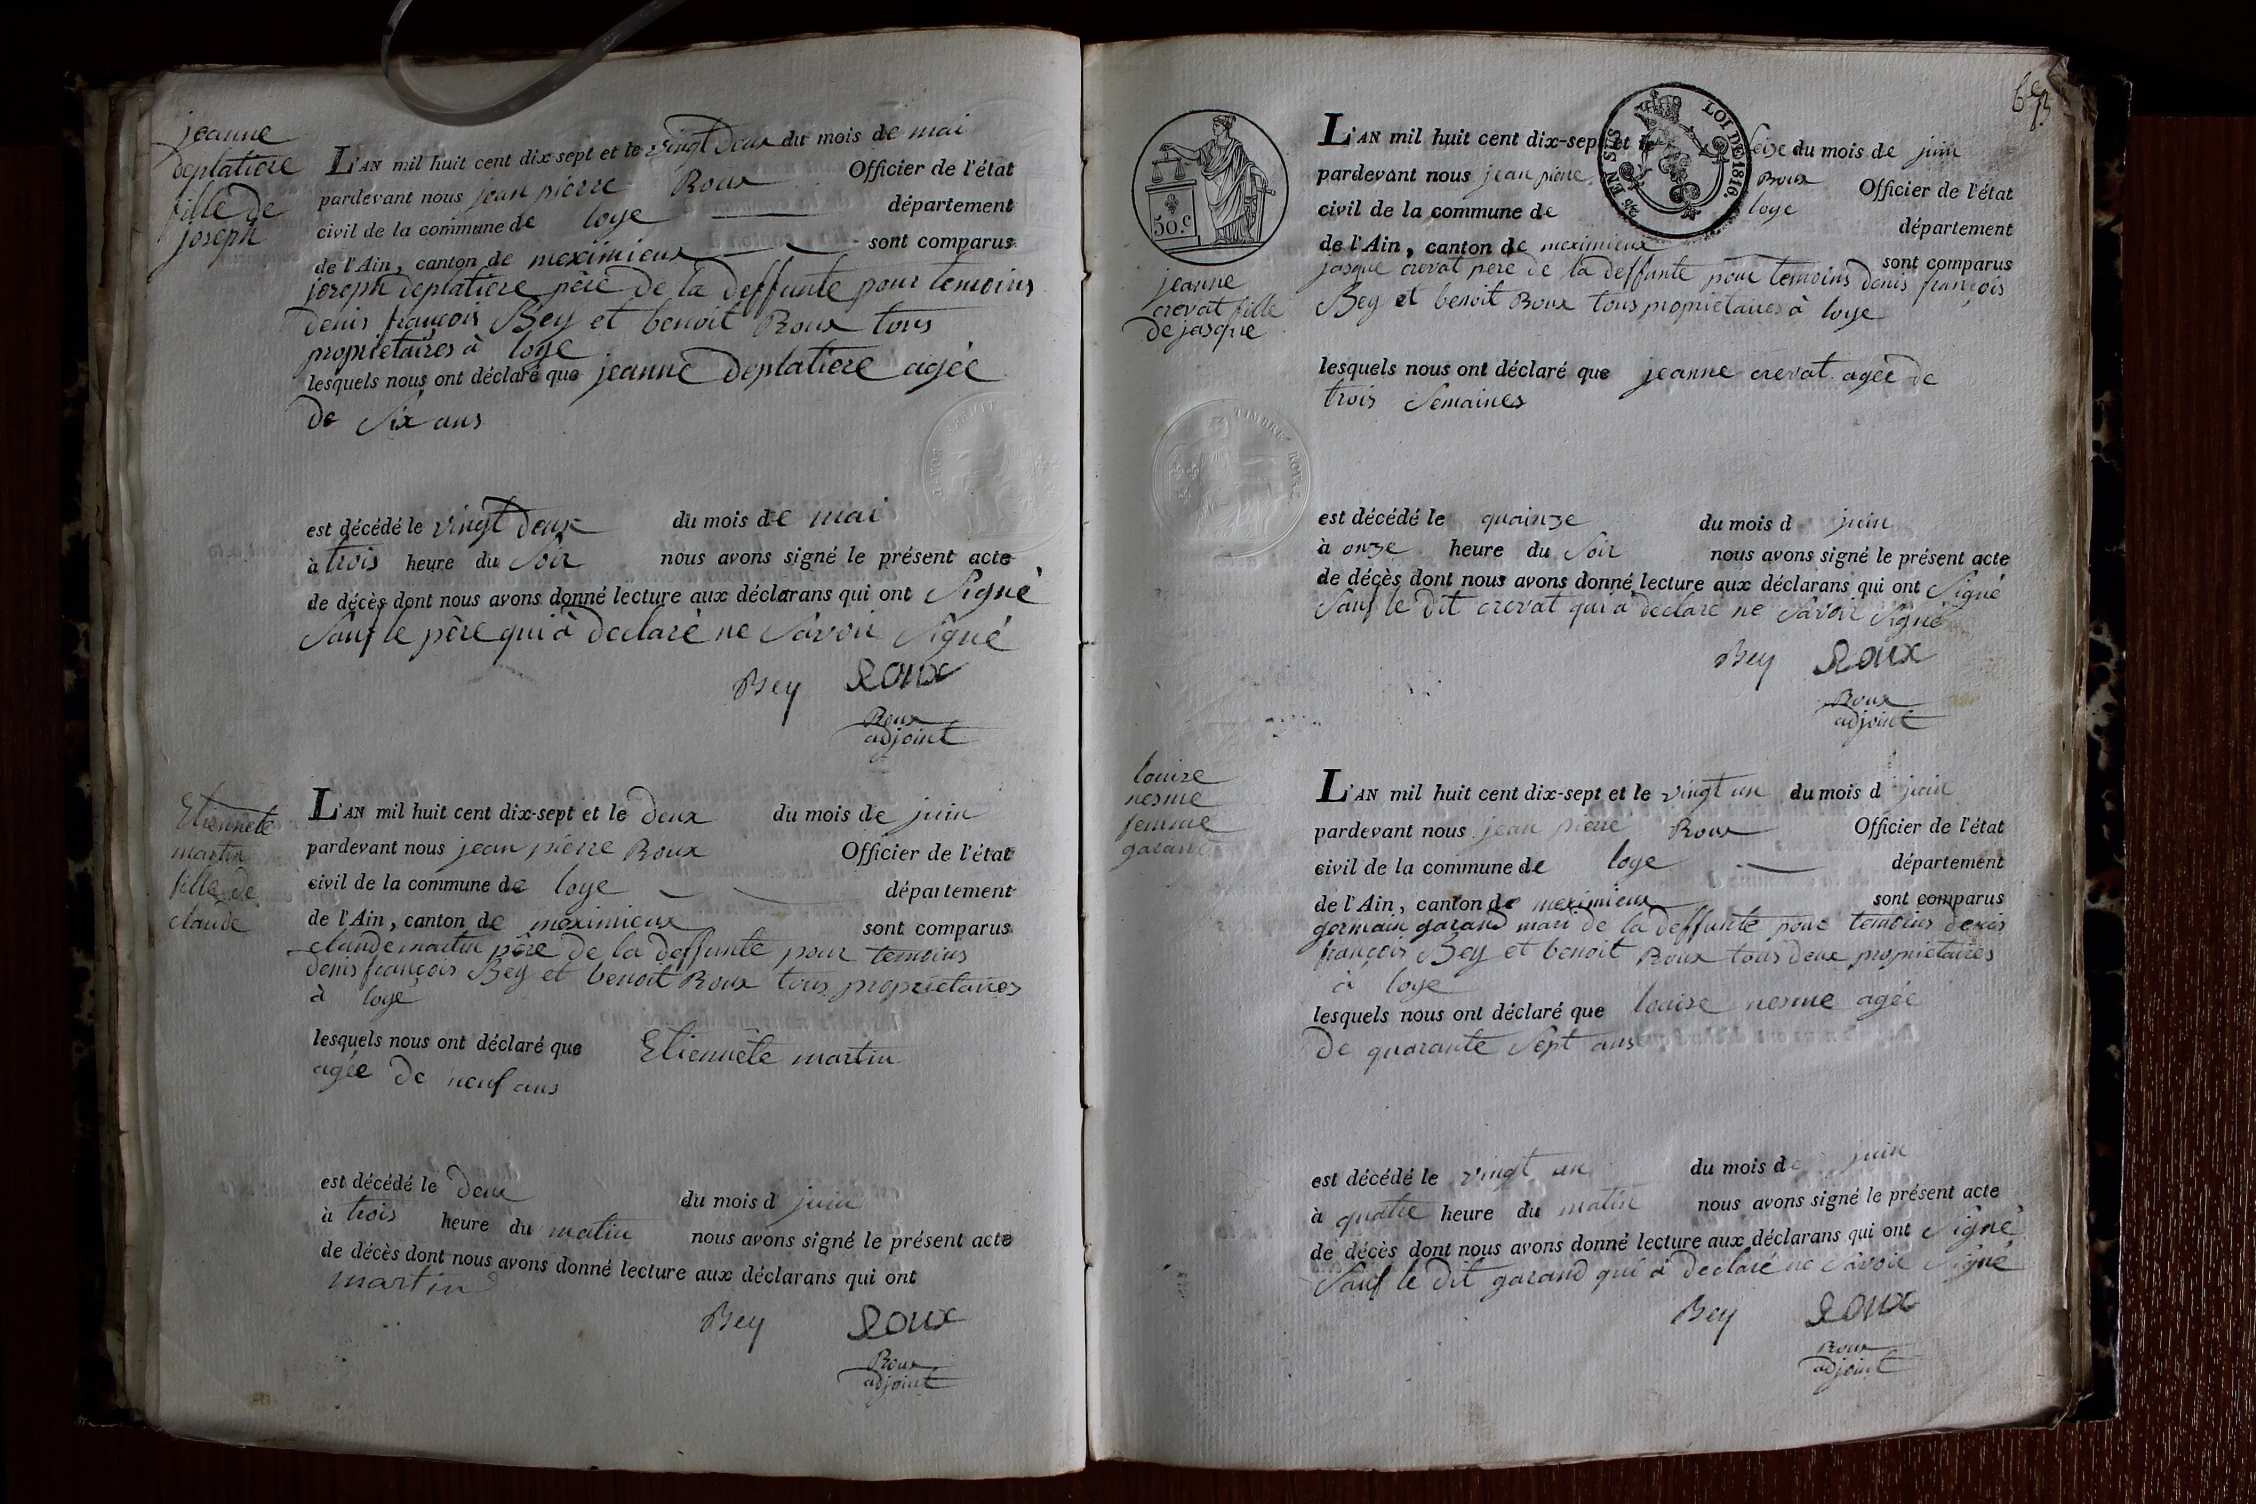 jeanne
deplatiere
fille de
joseph
L'AN mil huit cent dix-sept et le vingt deux du mois de mai
pardevant nous jean pierre Roux Officier de l'état
civil de la commune de loye département
de l'Ain, canton de meximieux sont comparus
joseph deplatiere père de la deffunte pour temoins
denis françois Bey et benoit Roux tous
proprietaires à loye
lesquels nous ont déclaré que jeanne deplatiere agée
de Six ans
est décédé le vingt deux du mois de mai
à trois heure du Soir nous avons signé le présent acte
de décès dont nous avons donné lecture aux déclarans qui ont Signé
Sauf le père qui à declaré ne Savoir Signé
Bey Roux
Roux
adjoint
Etiennete
martin
fille de
claude
L'AN mil huit cent dix-sept et le deux du mois de juin
pardevant nous jean pierre Roux Officier de l'état
civil de la commune de loye département
de l'Ain, canton de meximieux sont comparus
claude martin père de la deffunte pour temoins
denis françois Bey et benoit Roux tous proprietaires
à loye
lesquels nous ont déclaré que Etiennete martin
agée de neuf ans
est décédé le deux du mois d juin
à trois heure du matin nous avons signé le présent acte
de décès dont nous avons donné lecture aux déclarans qui ont
martin
Bey Roux
Roux
adjoint
50.c
LOI DE 1816.
EN SUS
TIMBRE ROYAL
jeanne
crevat fille
de jasque
L'AN mil huit cent dix-sept et le Seize du mois de juin
pardevant nous jean pierre Roux Officier de l'état
civil de la commune de loye département
de l'Ain, canton de meximieux sont comparus
jasque crevat père de la deffunte pour temoins denis françois
Bey et benoit Roux tous proprietaires à loye
lesquels nous ont déclaré que jeanne crevat agée de
trois Semaines
est décédé le quainze du mois d juin
à onze heure du Soir nous avons signé le présent acte
de décès dont nous avons donné lecture aux déclarans qui ont Signé
Sauf le dit crevat qui à declaré ne Savoir Signé
Bey Roux
Roux
adjoint
louise
nesme
femme
garant
L'AN mil huit cent dix-sept et le vingt un du mois d juin
pardevant nous jean pierre Roux Officier de l'état
civil de la commune de loye département
de l'Ain, canton de meximieux sont comparus
germain garand mari de la deffunte pour temoins denis
françois Bey et benoit Roux tous deux proprietaires
à loye
lesquels nous ont déclaré que louise nesme agée
de quarante Sept ans
est décédé le vingt un du mois de juin
à quatre heure du matin nous avons signé le présent acte
de décès dont nous avons donné lecture aux déclarans qui ont Signé
Sauf le dit garand qui à declaré ne Savoir Signé
Bey Roux
Roux
adjoint